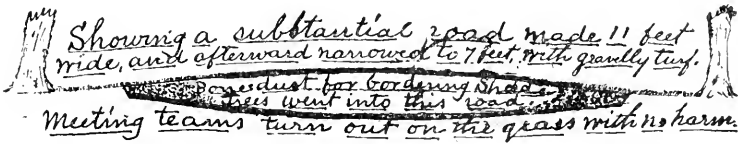 Showing a substantial road made 11 feet
wide, and afterward narrowed to 7 feet, with gravelly turf.
Bonedust for bordering Shade
Trees went into this road.
Meeting teams turn out on the grass with no harm.